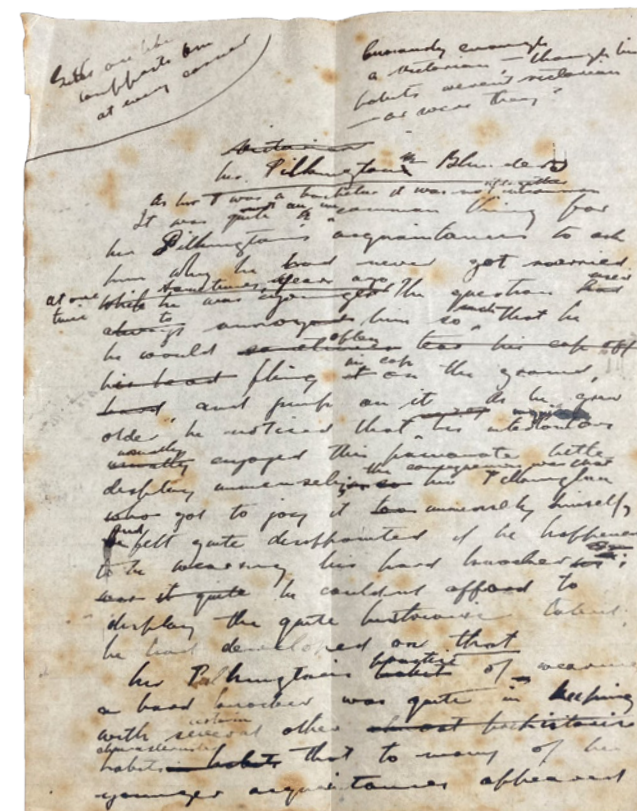 at every corner
a Victorian — though his
habits weren't Victorian
— or were they?
Mr. Pilkington's Blunders
As he was a bachelor it was no
It was quite a common thing for
Mr Pilkington's acquaintances to ask
him why he had never got married
at one
time
while he was younger the question used
to annoy him so much that he
he would often
fling his cap on the ground,
and jump on it. As he grew
older he noticed that his
usually enjoyed this passionate little
display immensely; the consequence was that Mr Pilkington
got to joy it immensely himself,
And felt quite disappointed if he happened
to be wearing his hard knocker
he couldn't afford to
display the quite histrionic talent
he had developed on that
Mr Pilkington's practice of wearing
a hard knocker was quite in keeping
with several other
habits that to many of his
younger acquaintances appeared